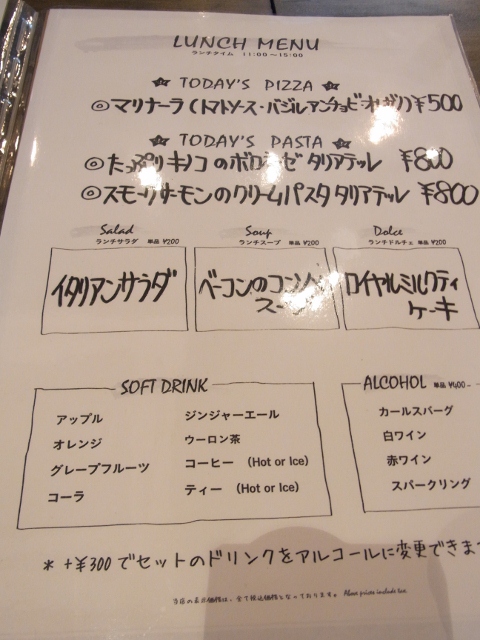 LUNCH MENU
ランチタイム 11:00〜15:00
☆ TODAY'S PIZZA ☆
◎マリナーラ(トマトソース・バジル・アンチョビ・オレガノ) ¥500
☆ TODAY'S PASTA ☆
◎たっぷりキノコのボロネーゼ タリアテッレ ¥800
◎スモークサーモンのクリームパスタ タリアテッレ ¥800
Salad
ランチサラダ 単品 ¥200
イタリアンサラダ
Soup
ランチスープ 単品 ¥200
ベーコンのコンソメ
スープ
Dolce
ランチドルチェ 単品 ¥200
ロイヤルミルクティ
ケーキ
SOFT DRINK
アップル
オレンジ
グレープフルーツ
コーラ
ジンジャーエール
ウーロン茶
コーヒー (Hot or Ice)
ティー (Hot or Ice)
ALCOHOL 単品 ¥400〜
カールスバーグ
白ワイン
赤ワイン
スパークリング
* +¥300でセットのドリンクをアルコールに変更できま
当店の表示価格は、全て税込価格となっております。 Above prices include tax.